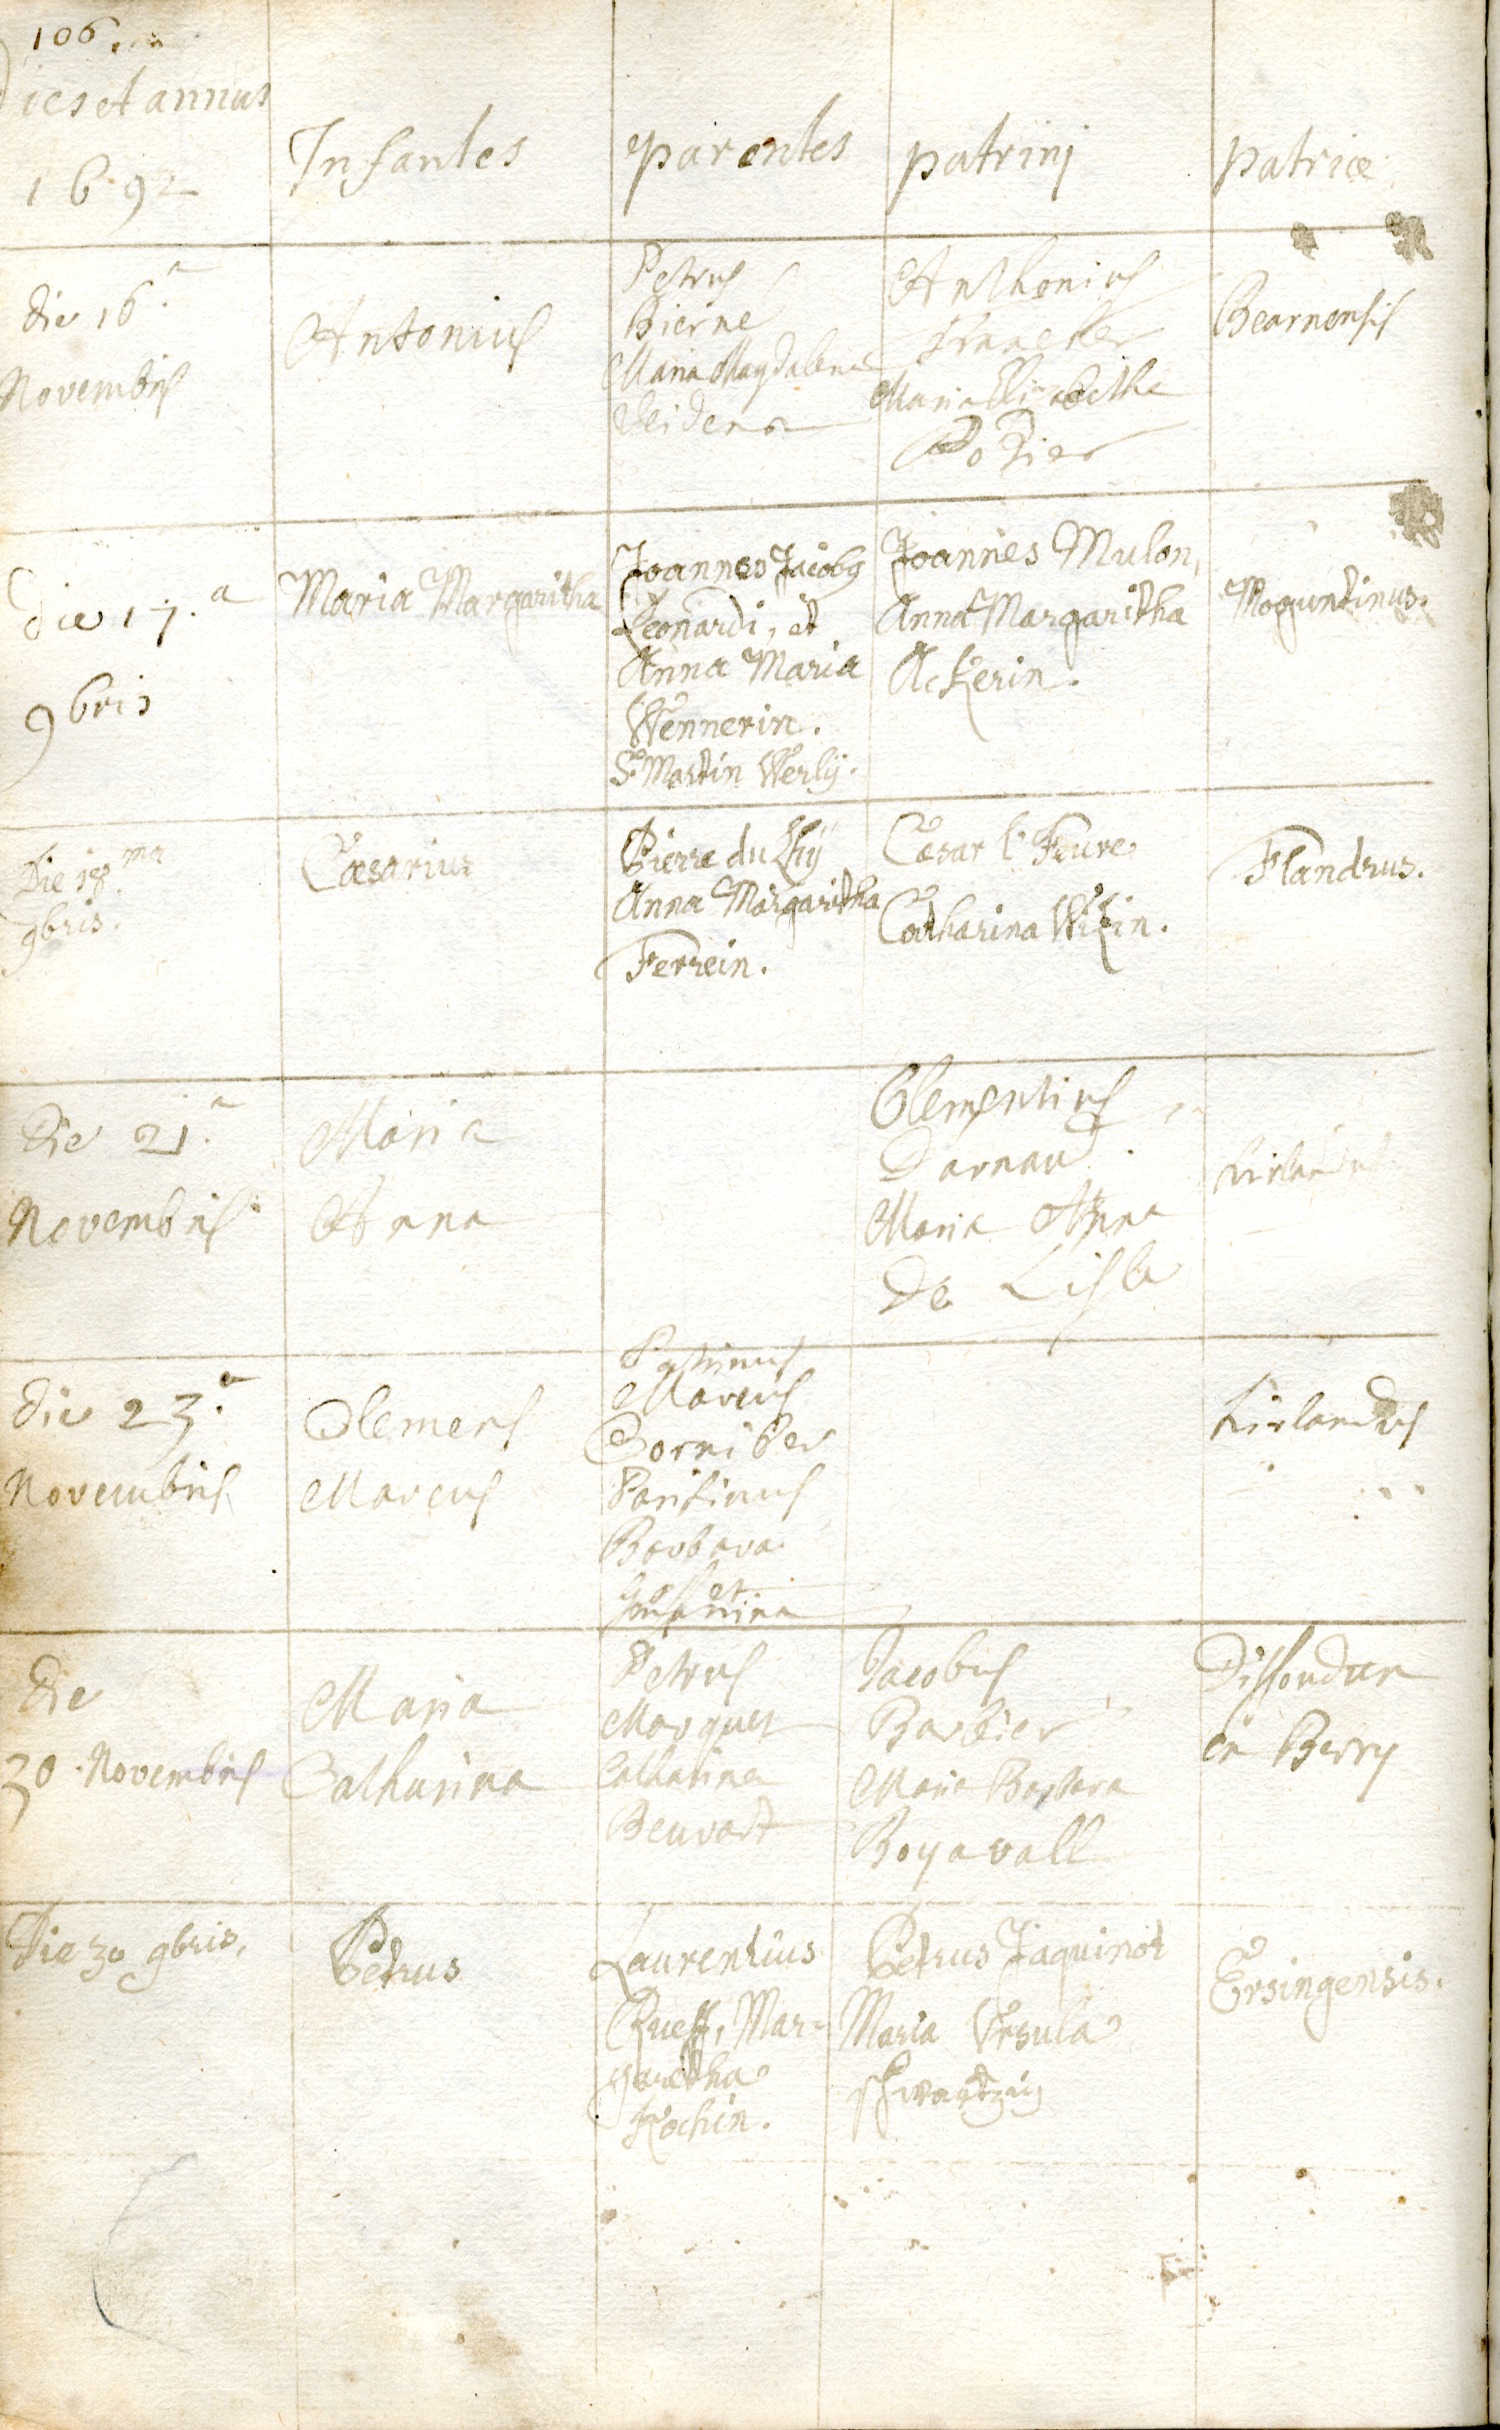 106.
Dies et annus
1692
Infantes
parentes
patrinj
patriæ
die 16.a
Novembris
Antonius
Petrus
Bierne
Maria Magdalena
Anthonius
Maria Elisabetha
Potier
Bearnensis
Die 17.a
9bris
Maria Margaritha
Joannes Jacobg
Leonardi, et
Anna Maria
Wennerin.
S. Martin Werlÿ.
Joannes Mulon,
Anna Margaritha
Ackerin.
Moguntinus.
Die 18.ma
9bris.
Cæsarius
Pierre du
Anna Margaritha
Ferrein.
Cæsar l'Feure
Catharina
Flandrus.
Die 21.a
Novembris
Maria
Anna
Clementius
Darnaud
Maria Anna
De Lisle
Die 23.a
Novembris
Clemens
Marcus
Patrinus
Marcus
Barbara
Die
30 Novembris
Maria
Catharina
Petrus
Marquet
Catharina
Beuvart
Jacobus
Barbier
Maria Barbara
Boyavall
en Berry
Die 30 9bris.
Petrus
Laurentius
Rueff, Mar-
garetha
Kochin.
Petrus Jaquinot
Maria Vrsula
Ersingensis.